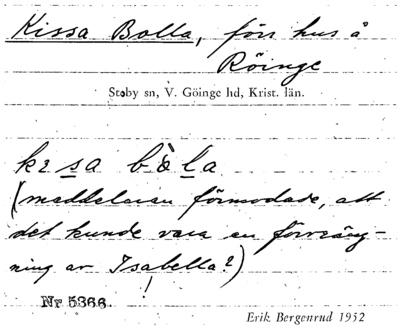 Kissa Bolla, förr hus å
Röinge
Stoby sn, V. Göinge hd, Krist. län.
kɪsa bòla
(meddelaren förmodade, att
det kunde vara en förvräng-
ning av Isabella?)
Nr 5366.
Erik Bergenrud 1952